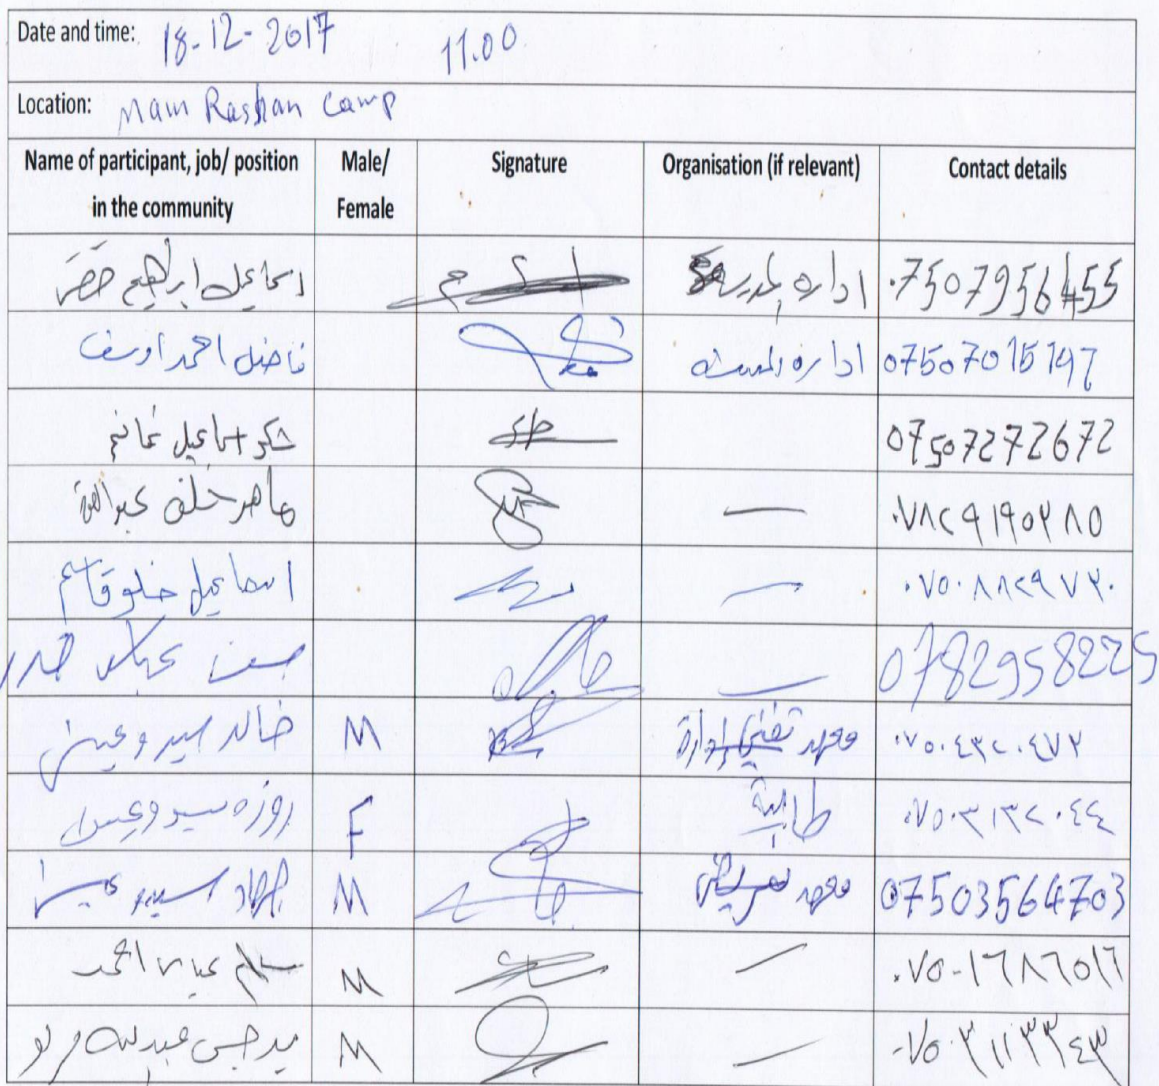 Date and time: 18-12-2017 11.00
Location: Mam Rashan Camp
Name of participant, job/ position in the community Male/ Female Signature Organisation (if relevant) Contact details
اسماعيل ابراهيم خضر اداره 07507956455
فاضل احمد اوسف اداره 07507015197
شكر اسماعيل غانم 07507272672
ماهر خلف عبدالله — ٠٧٨٢٩١٩٥٢٨٥
اسماعيل خلو قاسم — ٠٧٥٠٨٨٢٩٧٢٠
عباس — 0782958225
خالد سيدو M معهد تقني اداره ٠٧٥٠٤٣٢٠٤٧٢
روزه سيدو F طالبة ٠٧٥٠٣١٣٢٠٤٤
جهاد سيدو M معهد 07503564703
عباس احمد M — ٠٧٥٠١٦٨٦٥١٦
M — ٠٧٥٠٢١١٣٣٤٣